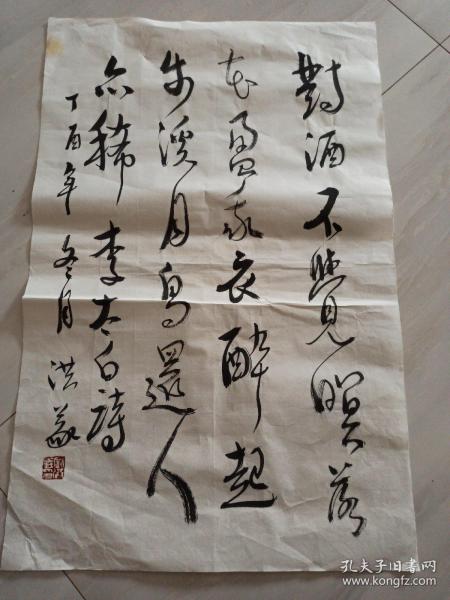 對酒不覺暝落
花盈我衣醉起
步溪月鳥還人
亦稀 李太白詩
丁酉年冬月 洪義
孔夫子旧书网
www.kongfz.com